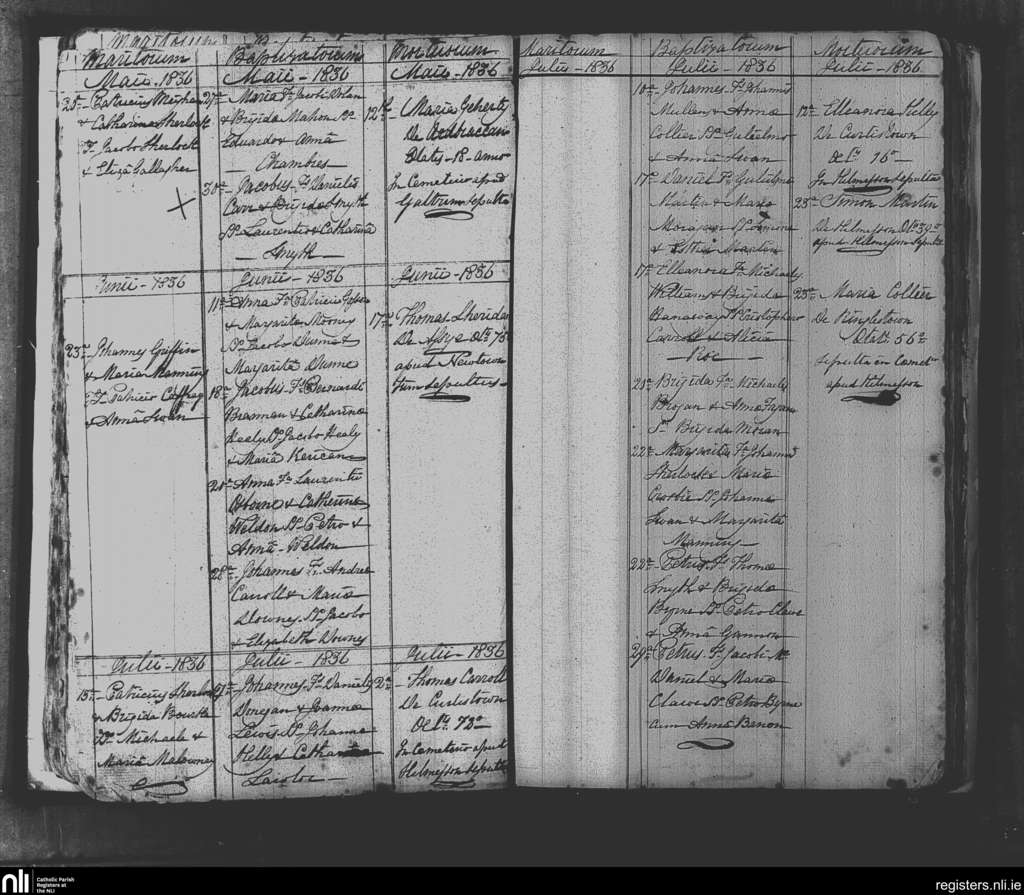 Maritorum
Maii - 1836
Patricius Meighan
& Catharina Sherlock
Ts. Jacobo Sherlock
& Eliza Gallagher
Junii - 1836
23a - Johannes Griffin
& Maria Manning
Ts. Patricio Caffrey
& Anna Swan
Julii - 1836
13a - Patricius Sherlock
& Brigida Bourke
Ts. Michaele &
Maria Malowney
Baptizatorum
Maii - 1836
Maria Fa. Jacobi Nolan
& Brigida Mahon Ss.
Eduardo & Anna
Chambres
30a - Jacobus Fs. Danielis
Carr & Brigida Smyth
Ss. Laurentio & Catharina
Smyth
Junii - 1836
11a - Anna Fa. Patricii
& Margarita Rooney
Ss. Jacobo Dunne &
Margarita Dunne
18a - Jacobus Fs. Bernardi
Brannan & Catharina
Healy Ss. Jacobo Healy
& Maria Kerican
20a - Anna Fa. Laurentii
Osborne & Catherine
Weldon Ss. Petro &
Anna - Weldon
28a - Johannes Fs. Andrea
Carroll & Maria
Downey Ss. Jacobo
& Elizabeth Downey
Julii - 1836
Johannes Fs. Danielis
Donegan & Joanna
Lewis Ss. Johanne
Kelly & Catharina
Lawlor
Mortuorum
Maii - 1836
12a - Maria Geherty
De Ardbraccan
Ætatis - 18 - anno
In Cemeterio apud
Galtrum sepulta
Junii - 1836
17a - Thomas Sheridan
De Ob. 75
apud Newtown
sepultus
Julii - 1836
2a - Thomas Carroll
De Curtistown
Ob. 72o
In Cemeterio apud
Kilmesson sepultus
Maritorum
Julii - 1836
Baptizatorum
Julii - 1836
10a - Johannes Fs. Johannis
Mullen & Anna
Collier Ss. Gulielmo
& Anna Swan
17a - Daniel Fs. Gulielmi
Martin & Maria
Ss. Simone
& Martin
17a - Elleanora Fa. Michaelis
Williams & Brigida
Ss. Cristophero
Carroll & Alicia
21a - Brigida Fa. Michaelis
Brogan & Anna Fagan
Ss. Brigida Moran
22a - Margarita Fa. Johannis
Sherlock & Maria
Crosbie Ss. Johanne
Swan & Margarita
Manning
22a - Petrus Fs. Thomæ
Smyth & Brigida
Byrne Ss. Petro Clave
& Anna Gannon
29a - Petrus Fs. Jacobi Mc
Daniel & Maria
Clave Ss. Petro Byrne
cum Anna Banon
Mortuorum
Julii - 1836
12a - Elleanora Kelly
De Curtistown
Ob. 76o
In Kilmesson sepulta
23a - Simon Martin
De Kilmesson Ob. 39o
apud Kilmesson sepultus
25a - Maria Collier
De Ringlestown
Ætat. 56o
sepulta in Cemet.
apud Kilmesson
nli
Catholic Parish
Registers at
the NLI
registers.nli.ie